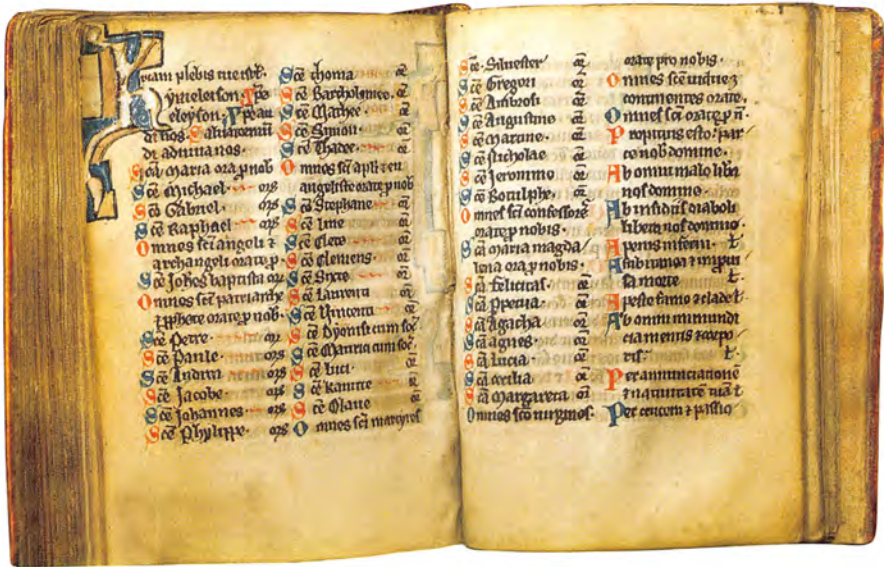 riam plebis tue
kyrieleison xpe
eleyson
di nos
di adiuua nos
Scā maria ora p nob
Scē Michael ora
Scē Gabriel ora
Scē Raphael ora
Omnes scī angeli ⁊
archangeli orate p
Scē Johēs baptista ora
Omnes scī patriarche
⁊ pphete orate p nob
Scē Petre ora
Scē Paule ora
Scē Andrea ora
Scē Jacobe ora
Scē Johannes ora
Scē Phylippe ora
Scē thoma or
Scē Bartholomee or
Scē Mathee or
Scē Simon or
Scē Thadee or
Omnes scī apłi ⁊ eu
angeliste orate p nob
Scē Stephane or
Scē line or
Scē Clete or
Scē Clemens or
Scē Syxte or
Scē laurenti or
Scē Vincenti or
Scē Dyonisi cum soc
Scē Maurici cum soc
Scē luci or
Scē kanute or
Scē Olaue or
Omnes scī martyres
Scē Siluester or
Scē Gregori or
Scē Ambrosi or
Scē Augustine or
Scē Martine or
Scē Nicholae or
Scē Jeronimo or
Scē Botulphe or
Omnes scī confessores
orate p nobis
Scā maria magda
lena ora p nobis
Scā felicitas or
Scā Ppetua or
Scā Agatha or
Scā agnes or
Scā lucia or
Scā cecilia or
Scā Margareta or
Omnes scē uirgines
orate pro nobis
Omnes scē uidue ⁊
continentes orate
Omnes scī orate p n
Propitius esto par
ce nob domine
Ab omni malo libera
nos domine
Ab insidiis diaboli
libera nos domine
A penis inferni ł
A subitanea ⁊ inproui
sa morte ł
A peste famis ⁊ clade ł
Ab omni inmundi
cia mentis ⁊ corpo
ris ł
Per annunciationē
⁊ natiuitatē tuā ł
Per crucem ⁊ passio